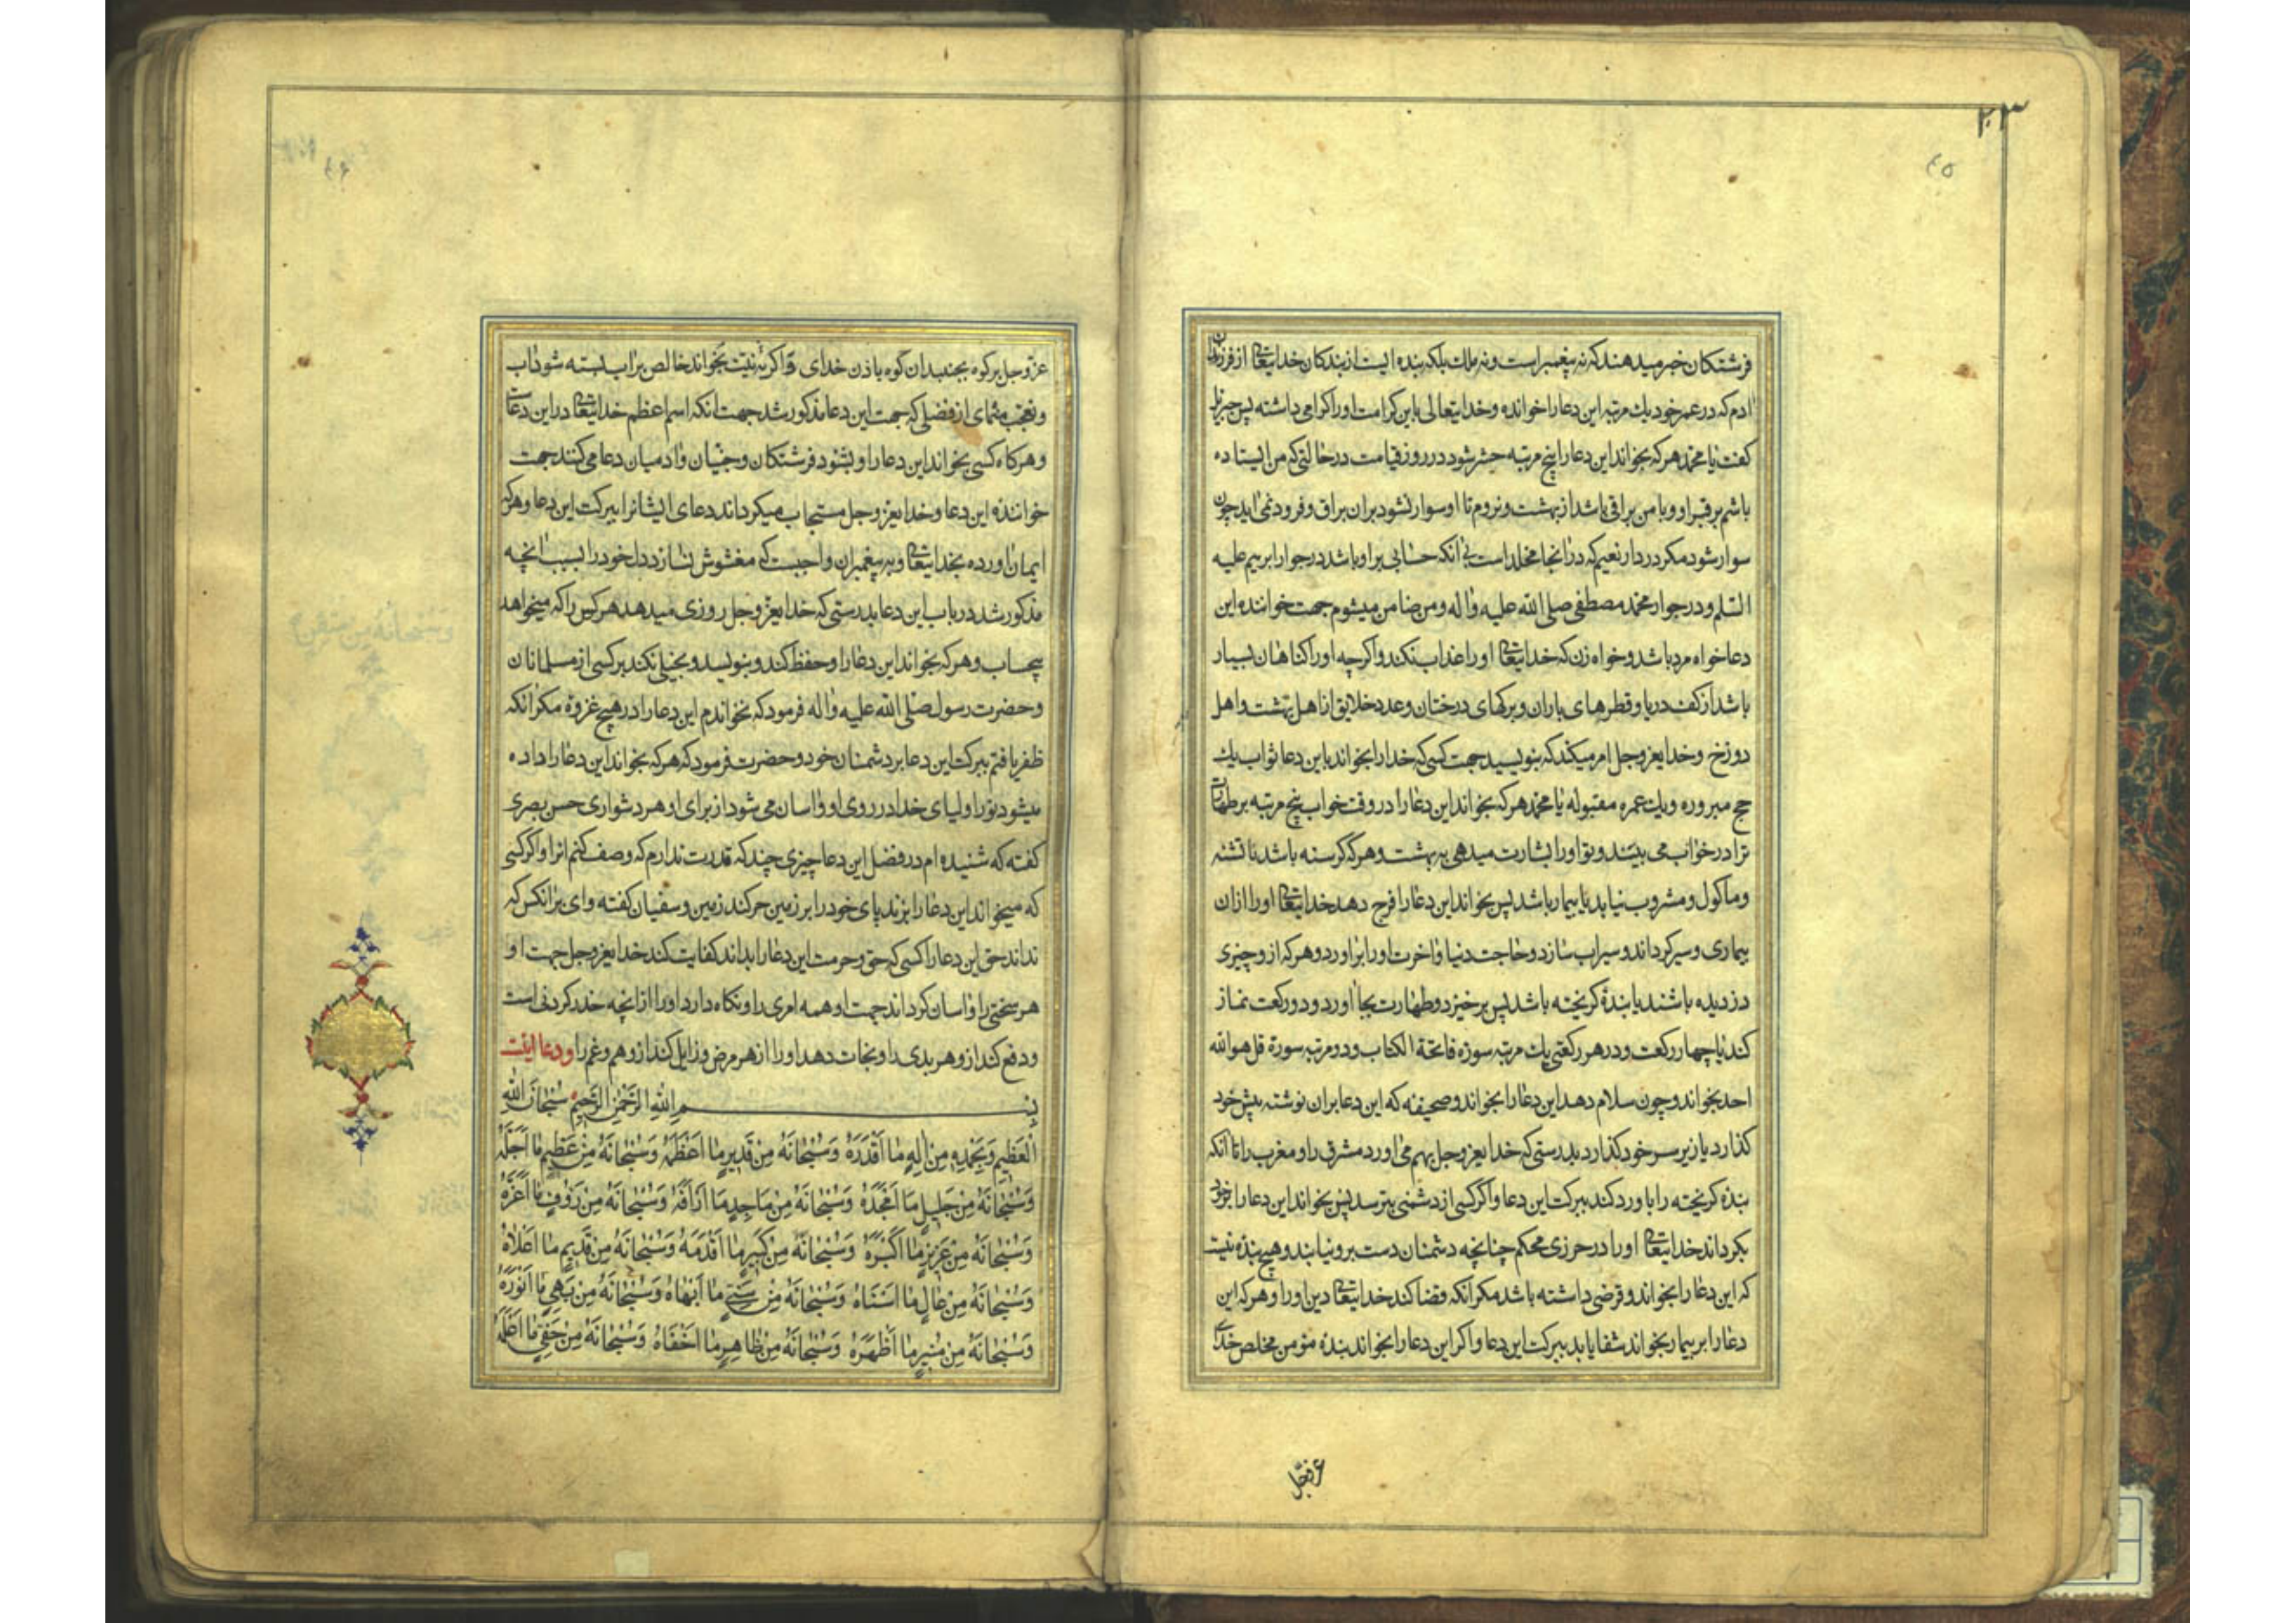 ۲۰۳
۴۵
فرشتکان خبر میدهند که نه پیغمبر است و نه ملك بلکه بنده ایست از بندکان خدایتعالی از فرزندان
ادم که در عمر خود یك مرتبه این دعا را خوانده و خدایتعالی باین کرامت او را کرامی داشته پس جبرئیل
کفت یا محمد هر که بخواند این دعا را پنج مرتبه حشر شود در روز قیامت در حالتی که من ایستاده
باشم بر قبر او و با من براقی باشد از بهشت و نروم تا او سوار نشود بران براق و فرود نمی اید چون
سوار شود مکر در دار نعیم که در انجا مخلد است بی انکه حسابی بر او باشد در جوار ابرهیم علیه
السلم و در جوار محمد مصطفی صلی الله علیه و اله و من ضامن میشوم جهت خواننده این
دعا خواه مرد باشد و خواه زن که خدایتعالی او را عذاب نکند و اکرچه او را کناهان بسیار
باشد از کف دریا و قطرهای باران و برکهای درختان و عدد خلایق از اهل بهشت و اهل
دوزخ و خدایعز وجل امر میکند که بنویسید جهت کسی که خدا را بخواند باین دعا ثواب یك
حج مبروره و یك عمره مقبوله یا محمد هر که بخواند این دعا را در وقت خواب پنج مرتبه بر طهارت
ترا در خواب می بیند و تو او را بشارت میدهی به بهشت و هر که کرسنه باشد یا تشنه
و ماکول و مشروب نیابد یا بیمار باشد پس بخواند این دعا را فرج دهد خدایتعالی او را ازان
بیماری و سیر کرداند و سیراب سازد و حاجت دنیا و اخرت او را براورد و هر که از و چیزی
دزدیده باشند یا بندۀ کریخته باشد پس برخیزد و طهارت بجا اورد و دو رکعت نماز
کند یا چهار رکعت و در هر رکعتی یك مرتبه سوره فاتحة الکتاب و دو مرتبه سورة قل هو الله
احد بخواند و چون سلام دهد این دعا را بخواند و صحیفه که این دعا بران نوشته پیش خود
کذارد یا زیر سر خود کذارد بدرستی که خدایعز وجل بهم می اورد مشرق را و مغرب را تا انکه
بنده کریخته را باورد کند ببرکت این دعا و اکر کسی از دشمنی بترسد پس بخواند این دعا را بر خود
بکرداند خدایتعالی او را در حرزی محکم چنانچه دشمنان دست برو نیابند و هیچ بنده نیست
که این دعا را بخواند و قرضی داشته باشد مکر انکه قضا کند خدایتعالی دین او را و هر که این
دعا را بر بیمار بخواند شفا یابد ببرکت این دعا و اکر این دعا را بخواند بنده مؤمن مخلص خدای
۴۶
عز وجل بر کوه بجنبد ان کوه باذن خدای و اکر به نیت بخواند خالص بر اب بسته شود اب
و تعجب منمای از فضلی که جهت این دعا مذکور شد جهت انکه اسم اعظم خدایتعالی در این دعاست
و هر کاه کسی بخواند این دعا را و بشنود فرشتکان و جنیان و ادمیان دعا می کنند جهت
خواننده این دعا و خدایعز وجل مستجاب میکرداند دعای ایشانرا ببرکت این دعا و هر که
ایمان اورده بخدایتعالی و به پیغمبران واجبست که مغشوش نسازد دل خود را بسبب انچه
مذکور شد در باب این دعا بدرستی که خدایعز وجل روزی میدهد هر کس را که میخواهد
بیحساب و هر که بخواند این دعا را و حفظ کند و بنویسد و بخیلی نکند بر کسی از مسلمانان
و حضرت رسول صلی الله علیه و اله فرمود که نخواندم این دعا را در هیچ غزوة مکر انکه
ظفر یافتم ببرکت این دعا بر دشمنان خود و حضرت فرمود که هر که بخواند این دعا را داده
میشود نور اولیای خدا در روی او و اسان می شود از برای او هر دشواری حسن بصری
کفته که شنیده ام در فضل این دعا چیزی چند که قدرت ندارم که وصف کنم انرا و اکر کسی
که میخواند این دعا را بزند پای خود را بر زمین حرکت کند زمین و سفیان کفته وای بر انکس که
نداند حق این دعا را کسی که حق و حرمت این دعا را بداند کفایت کند خدایعز وجل جهت او
هر سختی را و اسان کرداند جهت او همه امری را و نکاه دارد او را از انچه حذر کردنی است
و دفع کند از و هر بدی را و نجات دهد او را از هر مرض و زایل کند از و هم و غم را و دعا اینست
بِسْمِ اللهِ الرَّحْمٰنِ الرَّحِیمِ سُبْحَانَ اللهِ
الْعَظِیمِ وَبِحَمْدِهِ مِنْ اِلٰهٍ مَا اَقْدَرَهُ وَسُبْحَانَهُ مِنْ قَدِیرٍ مَا اَعْظَمَهُ وَسُبْحَانَهُ مِنْ عَظِیمٍ مَا اَجَلَّهُ
وَسُبْحَانَهُ مِنْ جَلِیلٍ مَا اَمْجَدَهُ وَسُبْحَانَهُ مِنْ مَاجِدٍ مَا اَرْاَفَهُ وَسُبْحَانَهُ مِنْ رَؤُفٍ مَا اَعَزَّهُ
وَسُبْحَانَهُ مِنْ عَزِیزٍ مَا اَکْبَرَهُ وَسُبْحَانَهُ مِنْ کَبِیرٍ مَا اَقْدَمَهُ وَسُبْحَانَهُ مِنْ قَدِیمٍ مَا اَعْلَاهُ
وَسُبْحَانَهُ مِنْ عَالٍ مَا اَسْنَاهُ وَسُبْحَانَهُ مِنْ سَنِیٍّ مَا اَبْهَاهُ وَسُبْحَانَهُ مِنْ بَهِیٍّ مَا اَنْوَرَهُ
وَسُبْحَانَهُ مِنْ مُنِیرٍ مَا اَظْهَرَهُ وَسُبْحَانَهُ مِنْ ظَاهِرٍ مَا اَخْفَاهُ وَسُبْحَانَهُ مِنْ خَفِیٍّ مَا اَعْلَمَهُ